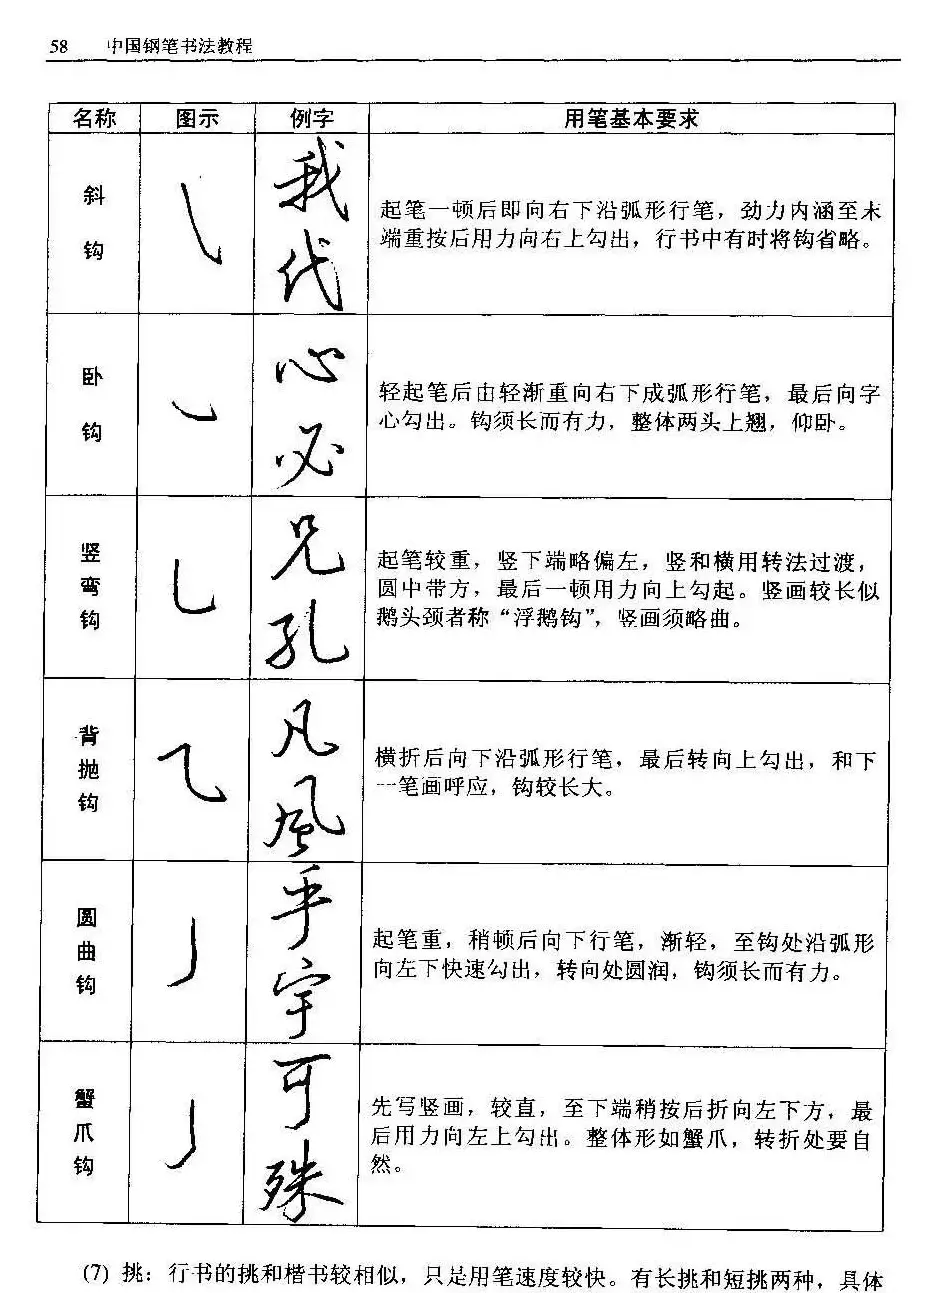 58 中国钢笔书法教程
名称 图示 例字 用笔基本要求
斜钩
我
代
起笔一顿后即向右下沿弧形行笔，劲力内涵至末
端重按后用力向右上勾出，行书中有时将钩省略。
卧钩
心
必
轻起笔后由轻渐重向右下成弧形行笔，最后向字
心勾出。钩须长而有力，整体两头上翘，仰卧。
竖弯钩
兄
孔
起笔较重，竖下端略偏左，竖和横用转法过渡，
圆中带方，最后一顿用力向上勾起。竖画较长似
鹅头颈者称“浮鹅钩”，竖画须略曲。
背抛钩
凡
風
横折后向下沿弧形行笔，最后转向上勾出，和下
一笔画呼应，钩较长大。
圆曲钩
乎
宇
起笔重，稍顿后向下行笔，渐轻，至钩处沿弧形
向左下快速勾出，转向处圆润，钩须长而有力。
蟹爪钩
可
殊
先写竖画，较直，至下端稍按后折向左下方，最
后用力向左上勾出。整体形如蟹爪，转折处要自
然。
(7) 挑：行书的挑和楷书较相似，只是用笔速度较快。有长挑和短挑两种，具体